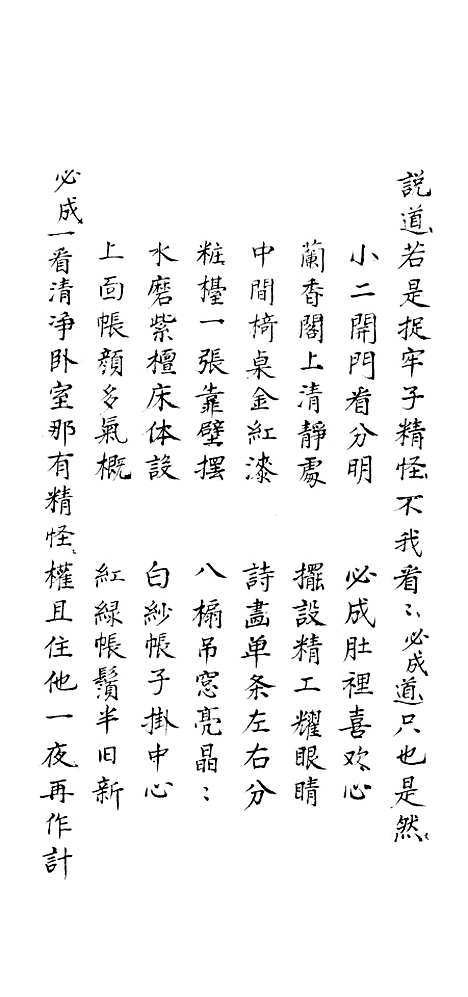 説道、若是捉牢子精怪、不我看〻、必成道、只也是然〻
小二開門看分明　必成肚裡喜欢心
蘭香閣上清靜處　擺設精工耀眼睛
中間椅桌金紅漆　詩畫单条左右分
粧檯一張靠壁摆　八槅吊窓亮晶〻
水磨紫檀床体設　白紗帳子掛中心
上面帳顔多氣概　紅緑帳鬚半旧新
必成、一看清净卧室那有精怪、權且住他一夜、再作計